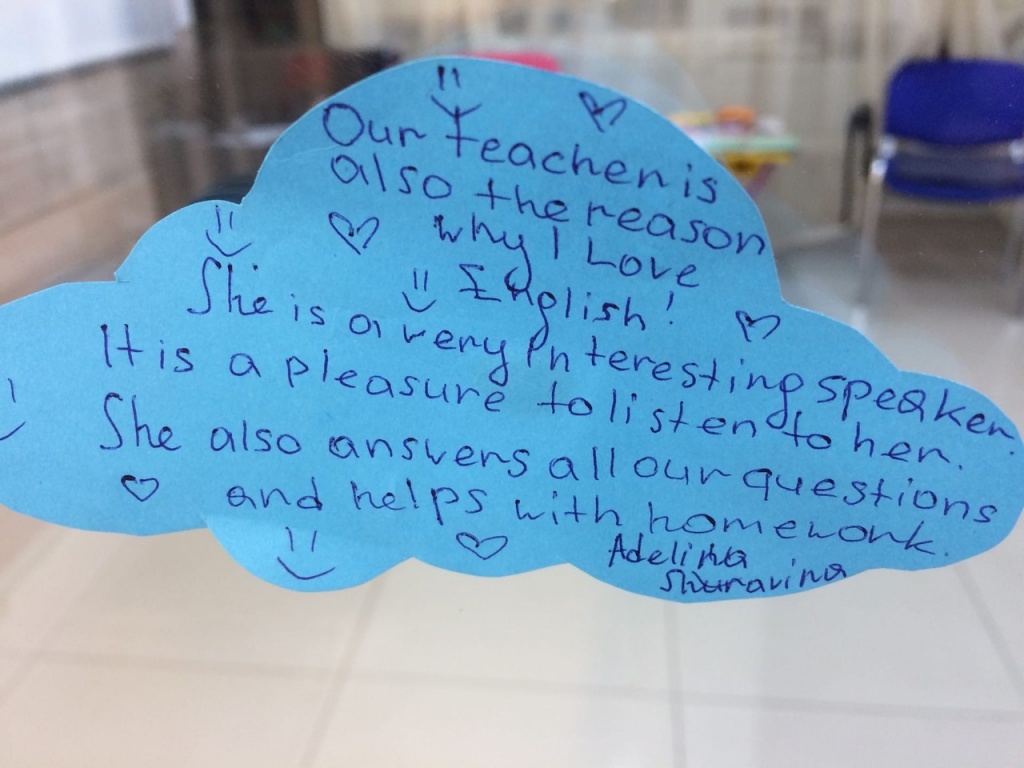 Our teacher is
also the reason
why I Love
English!
She is a very interesting speaker.
It is a pleasure to listen to her.
She also answers all our questions
and helps with homework.
Adelina
Shuravina